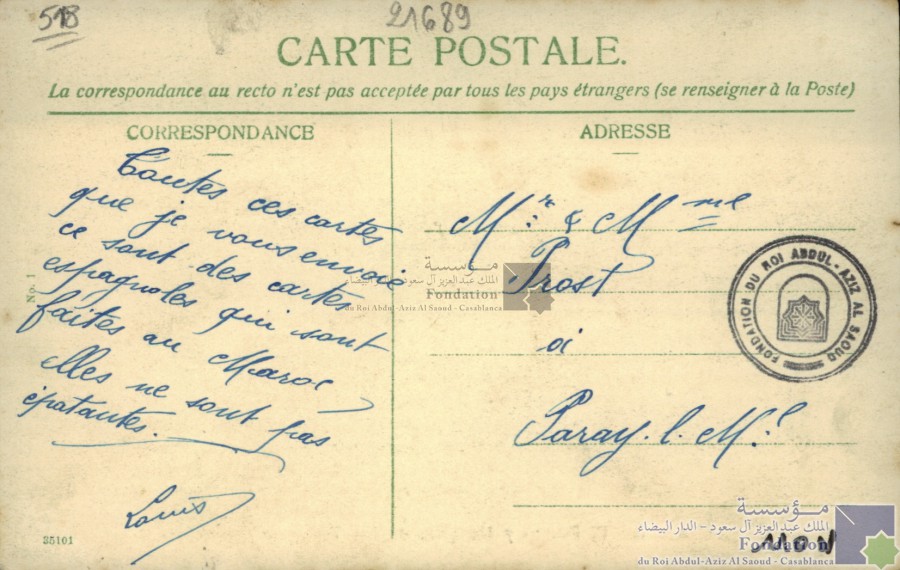 518
21689
CARTE POSTALE.
La correspondance au recto n'est pas acceptée par tous les pays étrangers (se renseigner à la Poste)
CORRESPONDANCE
Toutes ces cartes
que je vous envoie
ce sont des cartes
espagnoles qui sont
faites au Maroc
elles ne sont pas
épatantes.
Louis
No. 1
35101
ADRESSE
Mr & Mme
Prost
à
Paray. l. M.l
FONDATION DU ROI ABDUL-AZIZ AL SAOUD
مؤسسة
الملك عبد العزيز آل سعود - الدار البيضاء
Fondation
du Roi Abdul-Aziz Al Saoud - Casablanca
مؤسسة
الملك عبد العزيز آل سعود - الدار البيضاء
Fondation
du Roi Abdul-Aziz Al Saoud - Casablanca